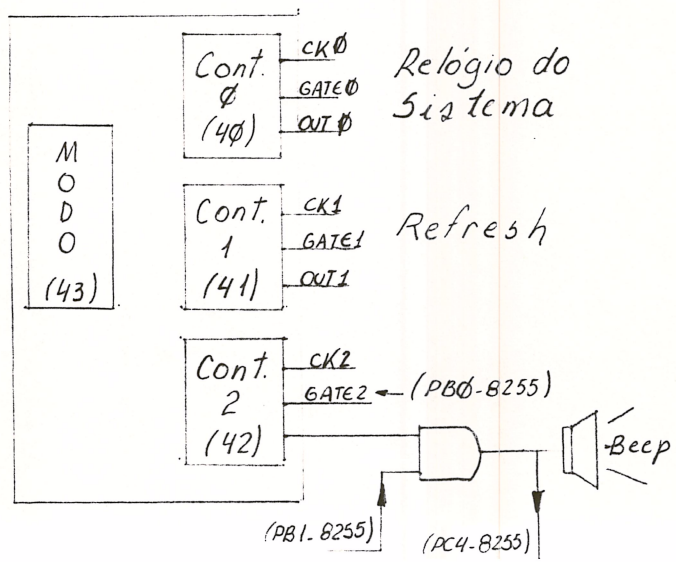 Cont.
Ø
(4Ø)
CKØ
GATEØ
OUTØ
Relógio do
Sistema
M
O
D
O
(43)
Cont.
1
(41)
CK1
GATE1
OUT1
Refresh
Cont.
2
(42)
CK2
GATE2
(PBØ-8255)
Beep
(PB1-8255)
(PC4-8255)